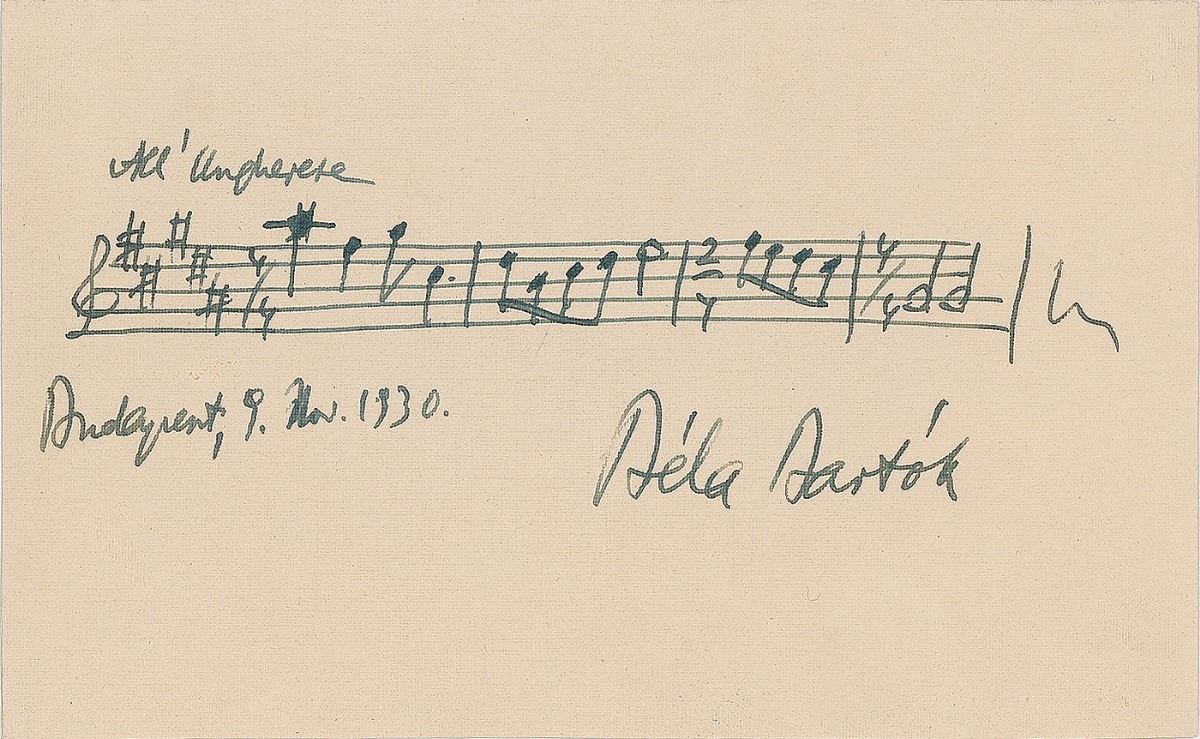 All' Ungherese
4/4 2/4 4/4
Budapest, 9. Nov. 1930.
Béla Bartók